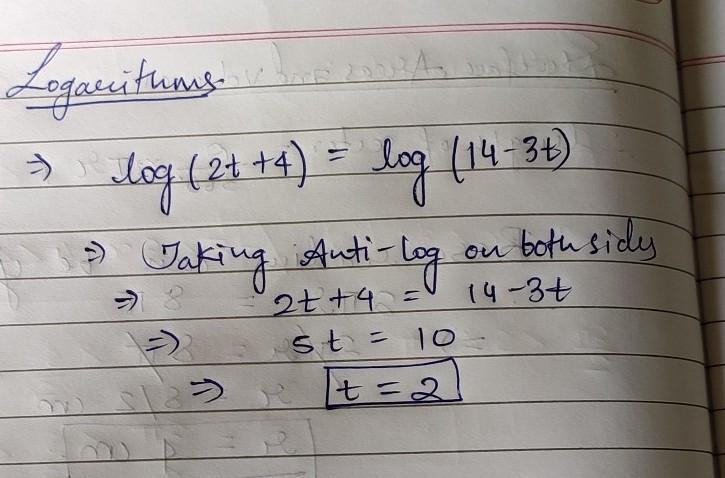 Logarithms
⇒ log (2t + 4) = log (14 - 3t)
⇒ Taking Anti-log on both sides
⇒ 2t + 4 = 14 - 3t
⇒ 5t = 10
⇒ t = 2